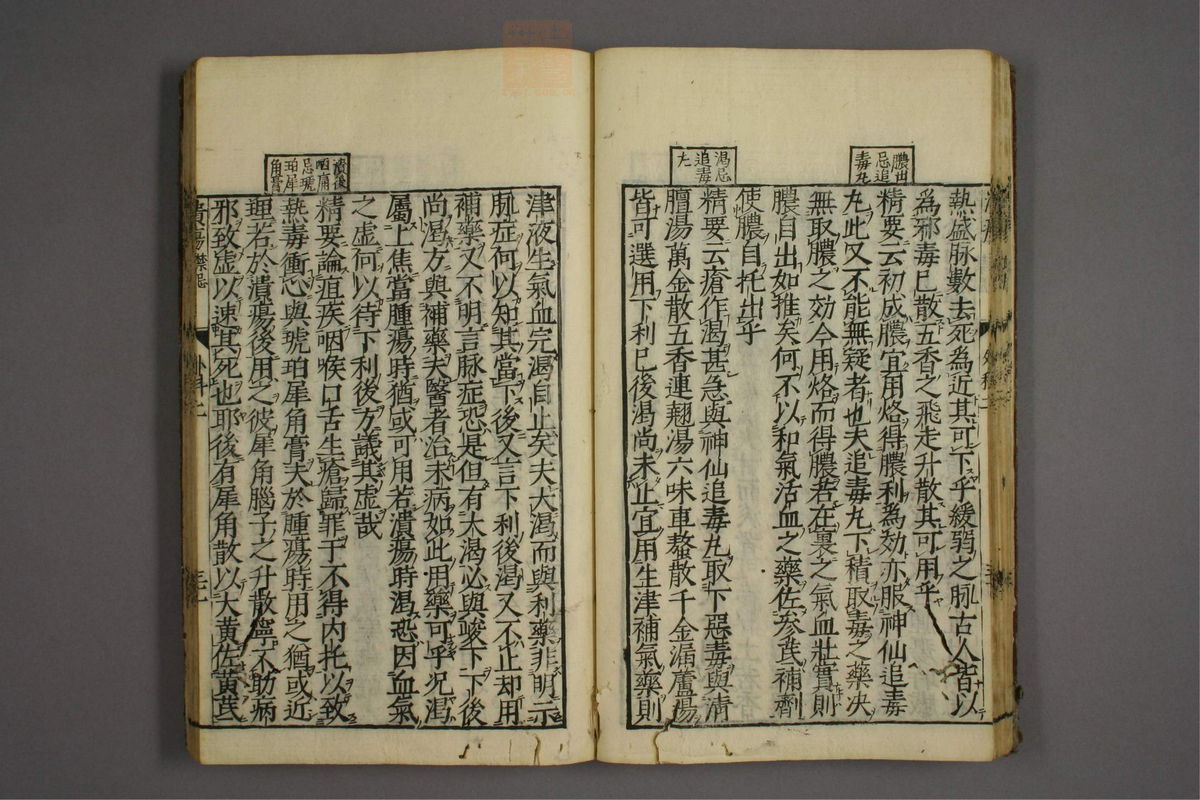 膿出
忌追
毒丸
渴忌
追毒
熱盛脉數去死為近其可下乎緩弱之脉古人皆以
為邪毒已散五香之飛走升散其可用乎
精要云初成膿宜用烙得膿利為効亦服神仙追毒
丸此又不能無疑者也夫追毒丸下積取毒之藥决
無取膿之効今用烙而得膿若在裏之氣血壯實則
膿自出如推矣何不以和氣活血之藥佐參芪補劑
使膿自托出乎
精要云瘡作渴甚急與神仙追毒丸取下惡毒與清
膻湯萬金散五香連翹湯六味車螯散千金漏蘆湯
皆可選用下利已後渴尚未止宜用生津補氣藥則
潰後
咽痛
忌琥
珀犀
角膏
津液生氣血完渴自止矣夫大渴而與利藥非明示
脉症何以知其當下後又言下利後渴又不止却用
補藥又不明言脉症恐是但有大渴必與峻下下後
尚渴方與補藥夫醫者治未病如此用藥可乎况渴
屬上焦當腫瘍時猶或可用若潰瘍時渴恐因血氣
之虚何以待下利後方議其虚哉
精要論疽疾咽喉口舌生瘡歸罪于不得内托以致
熱毒衝心與琥珀犀角膏夫於腫瘍時用之猶或近
理若於潰瘍後用之彼犀角腦子之升散寧不助病
邪致虚以速其死也耶後有犀角散以大黃佐黃芪
潰瘍禁忌
外科二